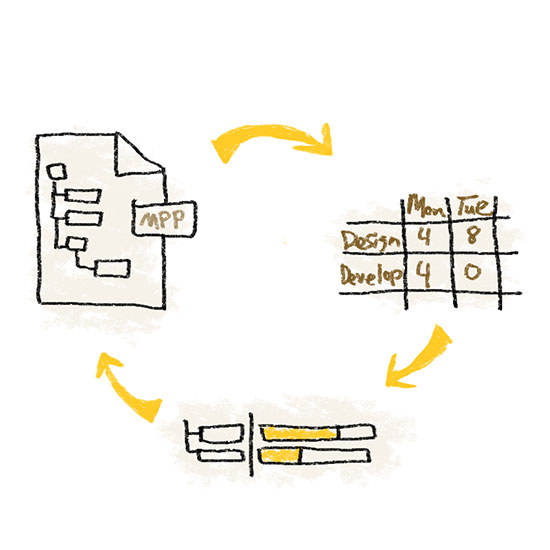 MPP
Mon Tue
Design 4 8
Develop 4 0